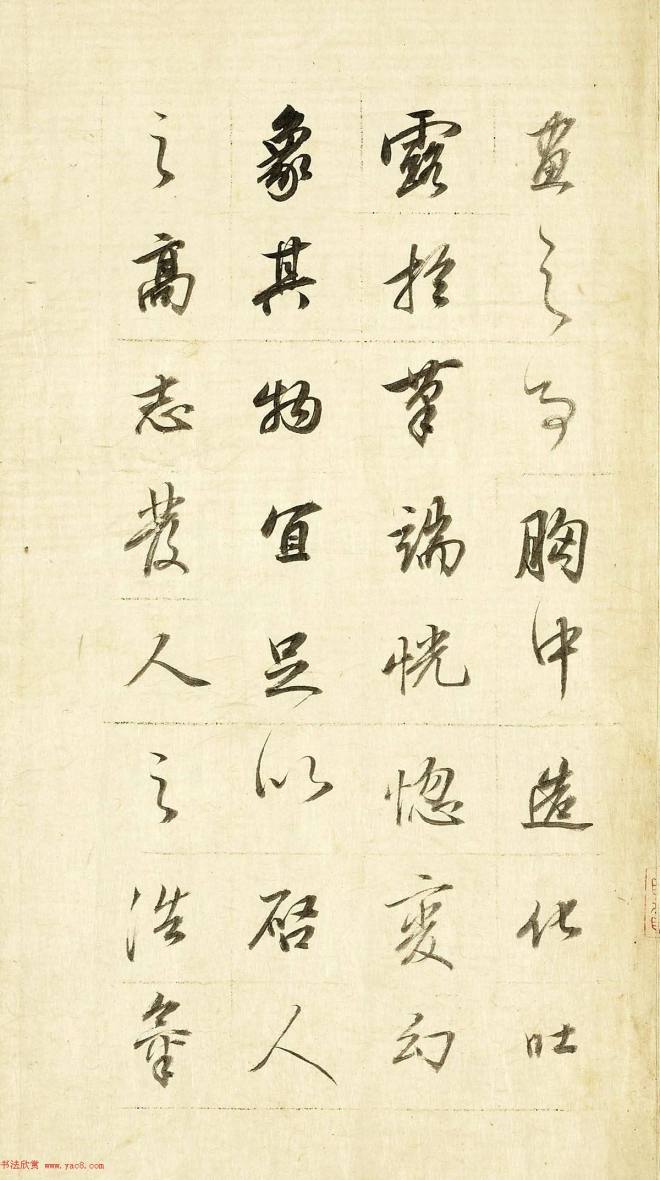 畫之為胸中造化吐
露於筆端恍惚變幻
象其物宜足以啓人
之高志發人之浩氣
书法欣赏 www.yac8.com